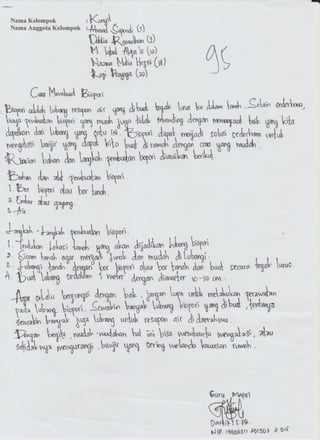 Nama Kelompok : Kunyit
Nama Anggota Kelompok : Ahmad Supendi (7)
Dikka Ramadhan (7)
M. Iqbal (10)
Nazwa (18)
Rapi (22)
95
Cara Membuat Biopori
Biopori adalah lubang resapan air yang dibuat tegak lurus ke dalam tanah. Selain sederhana,
biaya pembuatan biopori yang murah juga tidak sebanding dengan manfaat baik yang kita
dapatkan dari lubang yang satu ini. Biopori dapat menjadi solusi sederhana untuk
mengatasi banjir yang dapat kita buat di rumah dengan cara yang mudah.
Rincian bahan dan langkah pembuatan biopori diuraikan berikut.
Bahan dan alat pembuatan biopori.
1. Bor biopori atau bor tanah.
2. Ember atau gayung.
3. Air.
Langkah - langkah pembuatan biopori.
1. Tentukan lokasi tanah yang akan dijadikan lubang biopori.
2. Siram tanah agar menjadi lunak dan mudah di lubangi.
3. Lubangi tanah dengan bor biopori atau bor tanah dan buat secara tegak lurus.
4. Buat lubang sedalam 1 meter dengan diameter 10-30 cm.
Agar selalu berfungsi dengan baik, jangan lupa untuk melakukan perawatan
pada lubang biopori. Semakin banyak lubang biopori yang dibuat, tentunya
semakin banyak juga lubang untuk resapan air di daerahmu.
Dengan begitu, mudah-mudahan hal ini bisa membantu mengatasi, atau
setidaknya mengurangi, banjir yang sering melanda kawasan rumah.
Guru Mapel
S.Pd.
NIP.